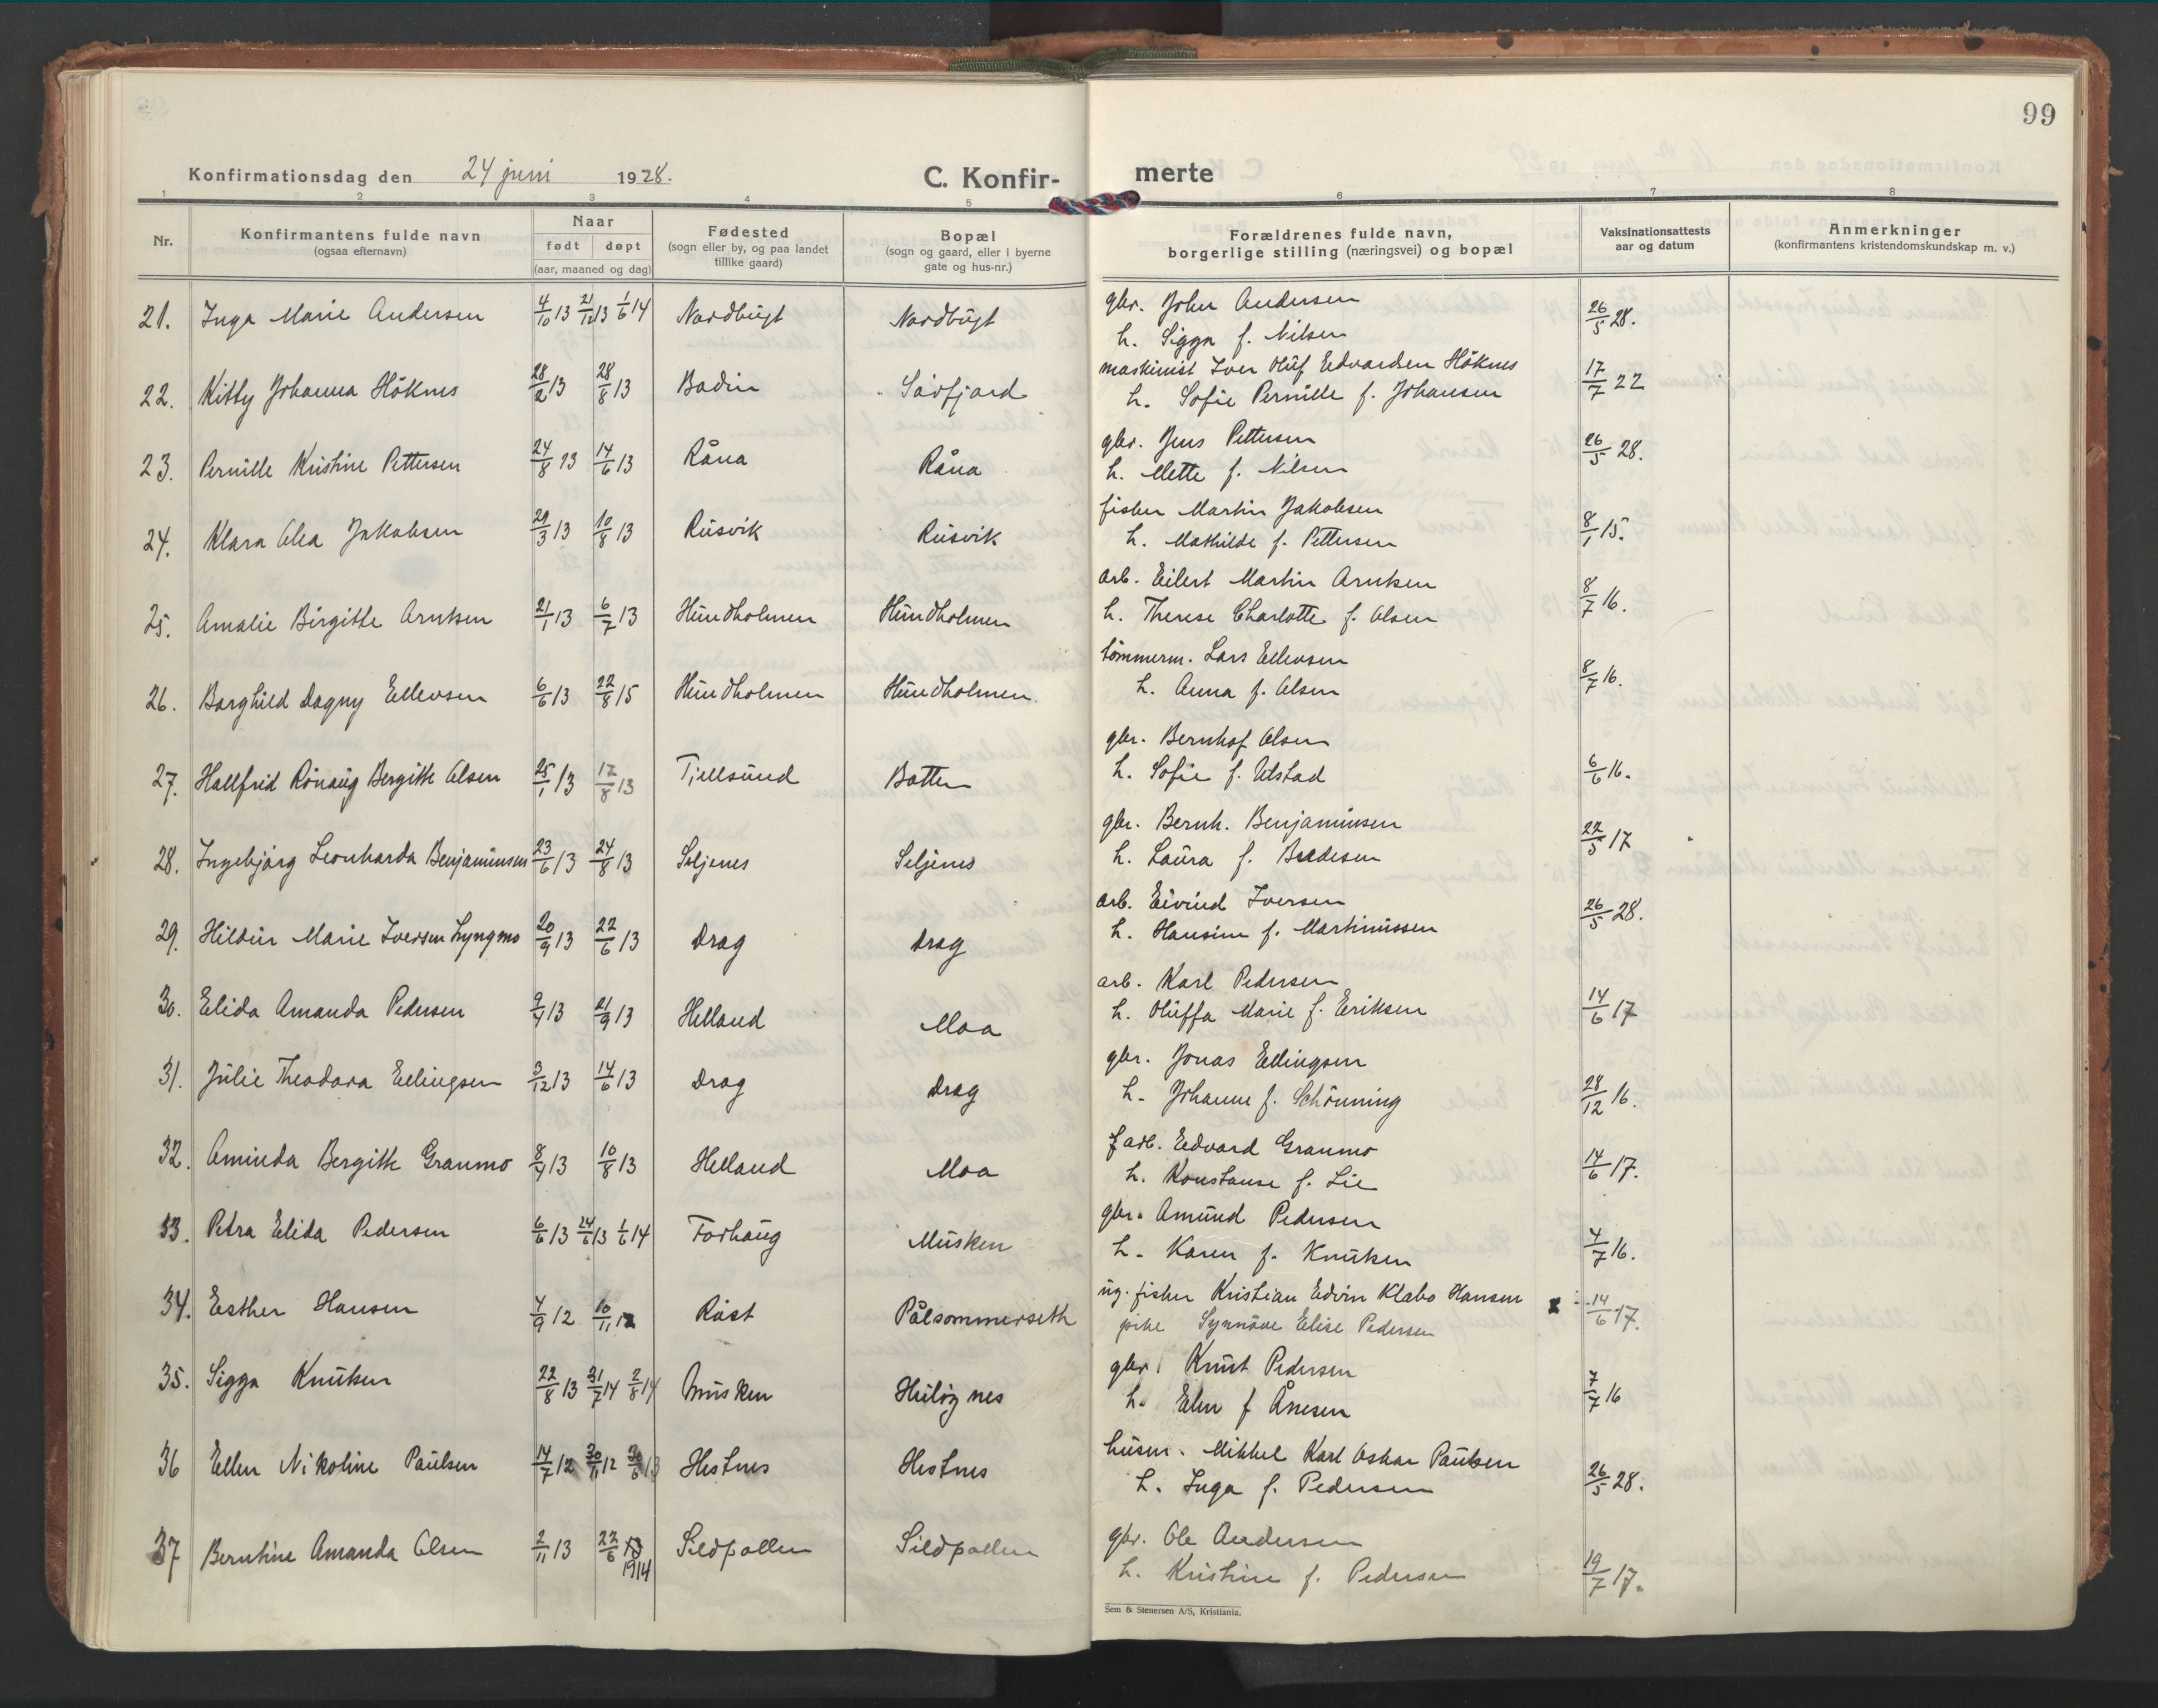 99
Konfirmationsdag den 24 juni 1928.
C. Konfir- merte
1 2 3 4 5 6 7 8
Nr.
Konfirmantens fulde navn
(ogsaa efternavn)
Naar
født døpt
(aar, maaned og dag)
Fødested
(sogn eller by, og paa landet
tillike gaard)
Bopæl
(sogn og gaard, eller i byerne
gate og hus-nr.)
Forældrenes fulde navn,
borgerlige stilling (næringsvei) og bopæl
Vaksinationsattests
aar og datum
Anmerkninger
(konfirmantens kristendomskundskap m. v.)
21. Inga Marie Andersen 4/10 13 21/12 13 1/6 14 Nordbugt Nordbugt gbr. John Andersen 26/5 28.
h. Sigga f. Nilsen
22. Kitty Johanna Höknes 28/2 13 28/8 13 Bodin Sørfjord maskinist Iver Oluf Edvardsen Höknes 17/7 22
h. Sofie Pernille f. Johansen
23. Pernille Kristine Pettersen 24/8 13 14/6 13 Råna Råna gbr. Jens Pettersen 26/5 28.
h. Mette f. Nilsen
24. Klara Olea Jakobsen 29/3 13 10/8 13 Rusvik Rusvik fisker Martin Jakobsen 8/1 15.
h. Mathilde f. Pettersen
25. Amalie Birgitte Arntsen 21/1 13 6/7 13 Hundholmen Hundholmen arb. Eilert Martin Arntsen 8/7 16.
h. Therese Charlotte f. Olsen
26. Borghild Dagny Ellevsen 6/6 13 22/8 15 Hundholmen Hundholmen. tömmerm. Lars Ellevsen 8/7 16.
h. Anna f. Olsen
27. Hallfrid Rönaug Bergitte Olsen 25/1 13 17/8 13 Tjellsund Botten gbr. Bernhof Olsen 6/6 16.
h. Sofie f. Ulstad
28. Ingebjörg Leonharda Benjaminsen 23/6 13 24/8 13 Seljenes Seljenes gbr. Bernh. Benjaminsen 22/5 17
h. Laura f. Bredesen
29. Hildur Marie Iversen Lyngmo 20/9 13 22/6 13 Drag Drag arb. Eivind Iversen 26/5 28.
h. Hansine f. Martinussen
30. Elida Amanda Pedersen 9/4 13 21/9 13 Helland Moa arb. Karl Pedersen 14/6 17
h. Oluffa Marie f. Eriksen
31. Julie Theodora Ellingsen 3/12 13 14/6 13 Drag Drag gbr. Jonas Ellingsen 28/12 16.
h. Johanne f. Schönning
32. Aminda Bergitte Granmo 8/4 13 10/8 13 Helland Moa f. arb. Edvard Granmo 14/6 17.
h. Konstanse f. Lie
33. Petra Elida Pedersen 6/6 13 24/6 13 1/6 14 Forhaug Musken gbr. Amund Pedersen 4/7 16.
h. Karen f. Knutsen
34. Esther Hansen 4/9 12 10/11 12 Röst Pålsommerseth ug. fisker Kristian Edvin Klabo Hansen x 14/6 17.
pike Synnöve Elise Pedersen
35. Sigga Knutsen 22/8 13 31/7 14 2/8 14 Musken Hulöynes gbr. Knut Pedersen 7/7 16
h. Elen f Ånesen
36 Ellen Nikoline Paulsen 14/7 12 30/11 12 Hestnes Hestnes husm. Mikkel Karl Oskar Paulsen 26/5 28.
h. Inga f. Pedersen
37 Berntine Amanda Olsen 2/11 13 22/6 13 1914 Sildpollen Sildpollen gbr. Ole Andersen 19/7 17.
h. Kristine f. Pedersen
Sem & Stenersen A/S, Kristiania.